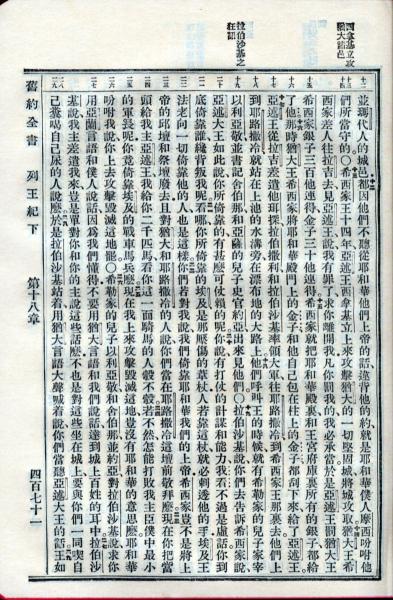 西拿基立攻
猶大諸邑
拉伯沙基之
狂語
並瑪代人的城邑都因他們不聽從耶和華他們上帝的話違背他的約就是耶和華僕人摩西吩咐他
們所當守的○希西家王十四年亞述王西拿基立上來攻擊猶大的一切堅固城將城攻取猶大王希
西家差人往拉吉去見亞述王說我有罪了求你離開我凡你罰我的我必承當於是亞述王罰猶大王
希西家銀子三百他連得金子三十他連得希西家就把耶和華殿裏和王宮府庫裏所有的銀子都給
了他那時猶大王希西家將耶和華殿門上的金子和他自己包在柱上的金子都刮下來給了亞述王
亞述王從拉吉差遣他珥探拉伯撒利和拉伯沙基率領大軍往耶路撒冷到希西家王那裏去他們上
到耶路撒冷就站在上池的水溝旁在漂布地的大路上他們呼叫王的時候就有希勒家的兒子家宰
以利亞敬並書記舍伯那和亞薩的兒子史官約亞出來見他們○拉伯沙基說你們去告訴希西家說
亞述大王如此說你所倚靠的有甚麼可仗賴的呢你說有打仗的計謀和能力我看不過是虛話你到
底倚靠誰纔背叛我呢看哪你所倚靠的埃及是那壓傷的葦杖人若靠這杖就必刺透他的手埃及王
法老向一切倚靠他的人也是這樣你們若對我說我們倚靠耶和華我們的上帝希西家豈不是將上
帝的邱壇和祭壇廢去且對猶大和耶路撒冷的人說你們當在耶路撒冷這壇前敬拜麼現在你把當
頭給我主亞述王我給你二千匹馬看你這一面騎馬的人彀不彀若不然怎能打敗我主臣僕中最小
的軍長呢你竟倚靠埃及的戰車馬兵麼現在我上來攻擊毀滅這地豈沒有耶和華的意思麼耶和華
吩咐我說你上去攻擊毀滅這地罷○希勒家的兒子以利亞敬和舍伯那並約亞對拉伯沙基說求你
用亞蘭言語和僕人說話因為我們懂得不要用猶大言語和我們說話達到城上百姓的耳中拉伯沙
基說我主差遣我來豈是單對你和你的主說這些話麼不也是對這些坐在城上要與你們一同喫自
己糞喝自己尿的人說麼於是拉伯沙基站着用猶大言語大聲喊着說你們當聽亞述大王的話王如
舊約全書 列王紀下 第十八章 四百七十一